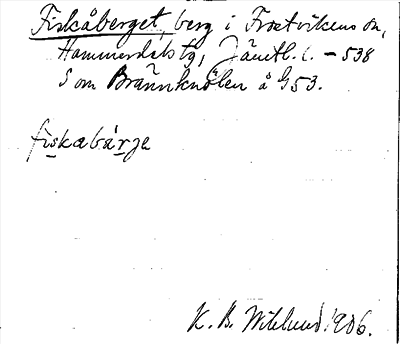 Fiskåberget, berg i Frostvikens sn,
Hammerdals tg, Jämtl. l. – 538
S om Brännknölen å G53.
fiskabárje
K. B. Wiklund 1906.